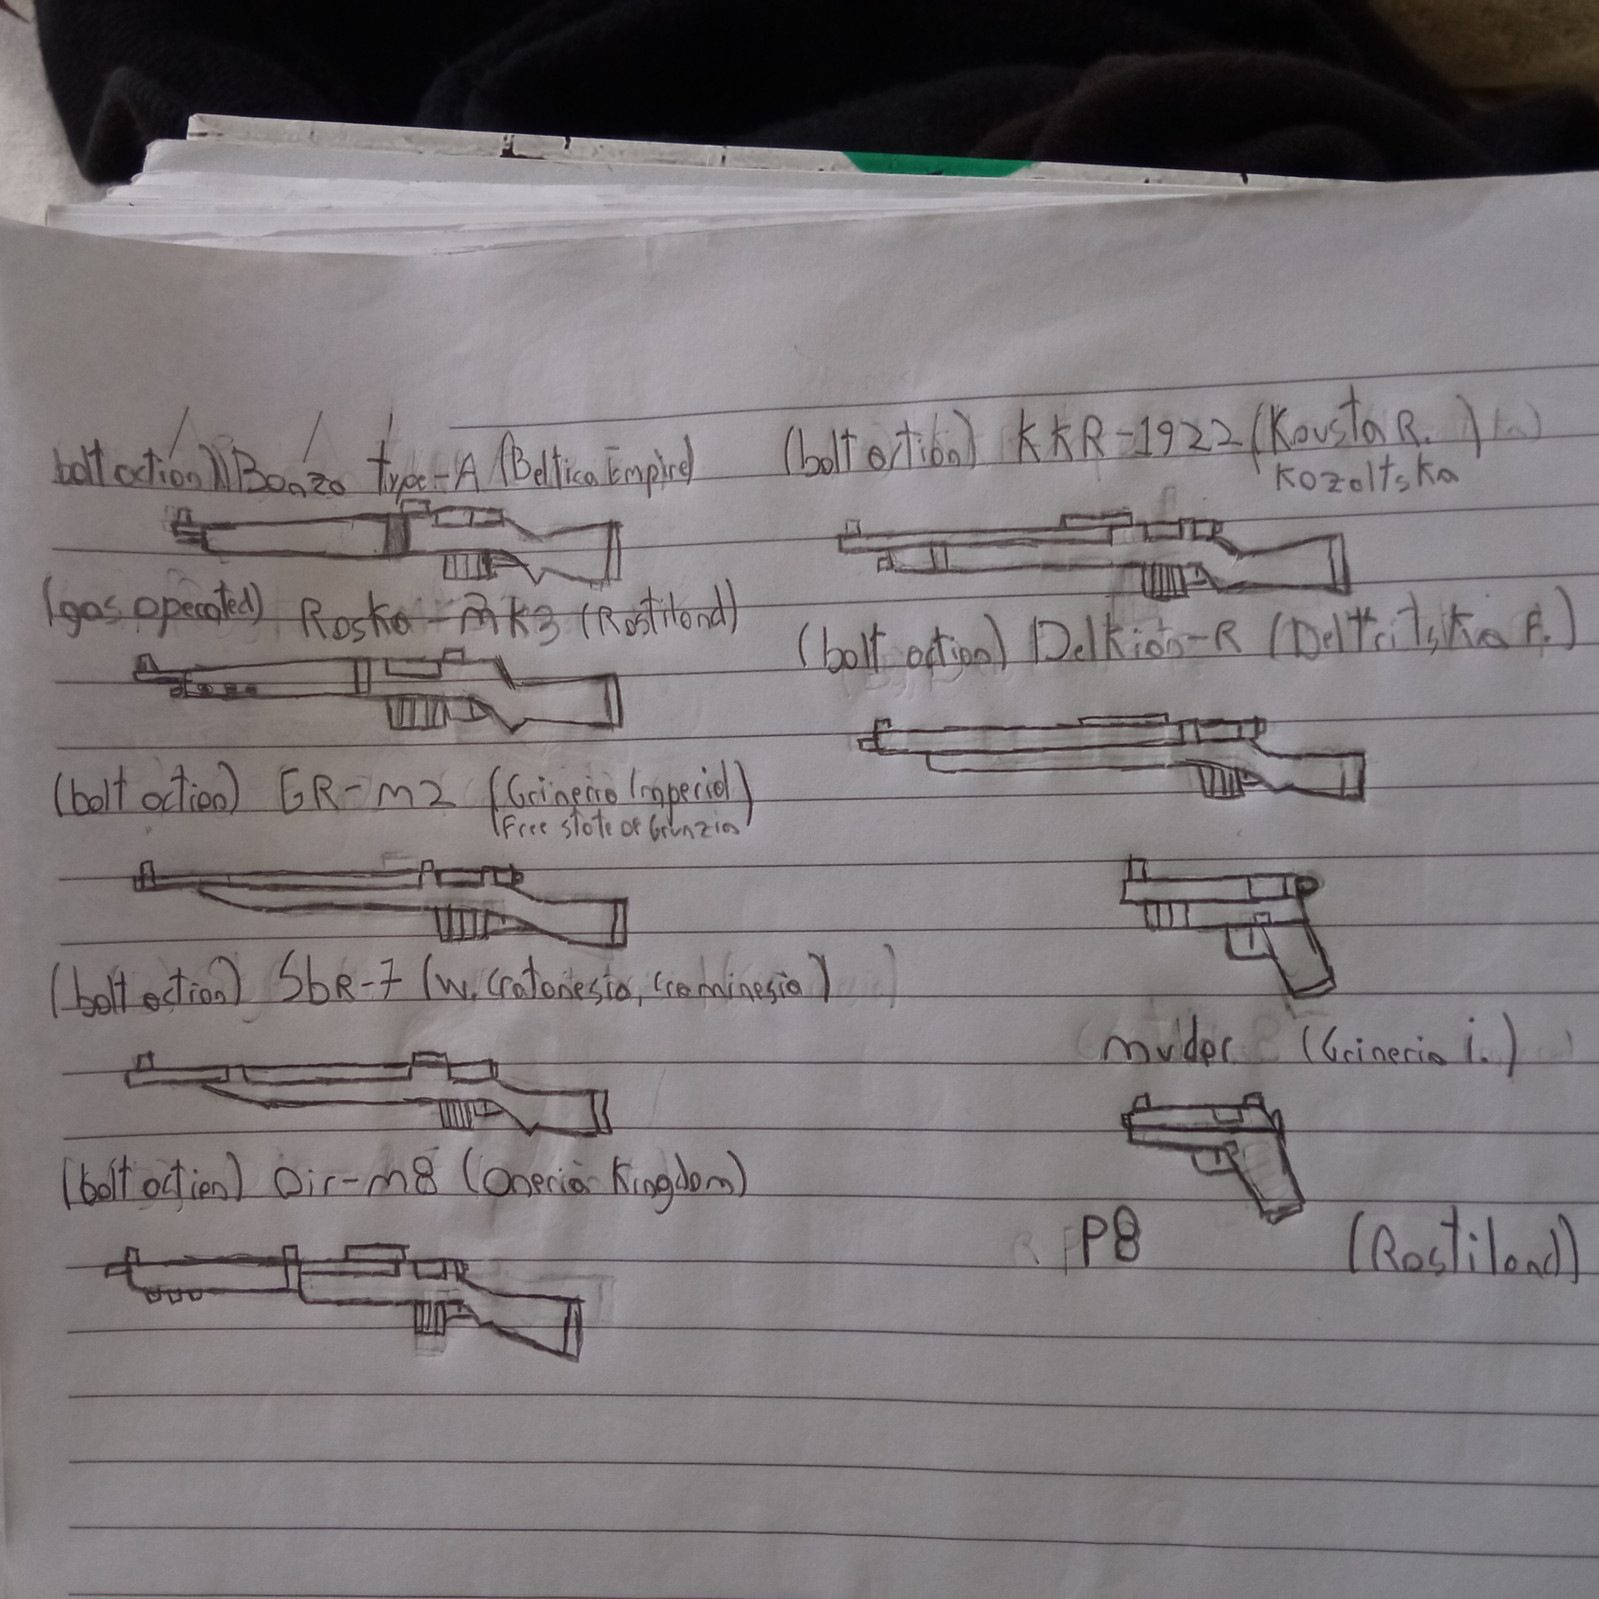 (bolt action) Bonzo type-A (Beltica Empire)
(gas operated) Rosko-mk3 (Rostiland)
(bolt action) GR-M2 (Grineria Imperial)
(Free state of Grunzia)
(bolt action) SbR-7 (W. Cratonesia, Craminesia)
(bolt action) Oir-m8 (Oneria Kingdom)
(bolt action) KKR-1922 (Kousta R.)
Kozoltska
(bolt action) Delkion-R
(Grineria i.)
P8 (Rostiland)